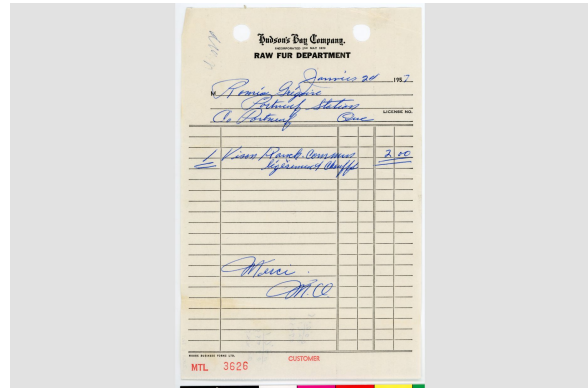 Hudson's Bay Company.
INCORPORATED 2ND MAY 1670
RAW FUR DEPARTMENT
Janvier 24 1957
M Roméo Grégoire
Portneuf Station
Co Portneuf Que
LICENSE NO.
1 Vison Ranch. Commun 2 00
légèrement chauffé
Merci.
M.O.
MOORE BUSINESS FORMS LTD.
CUSTOMER
MTL 3626